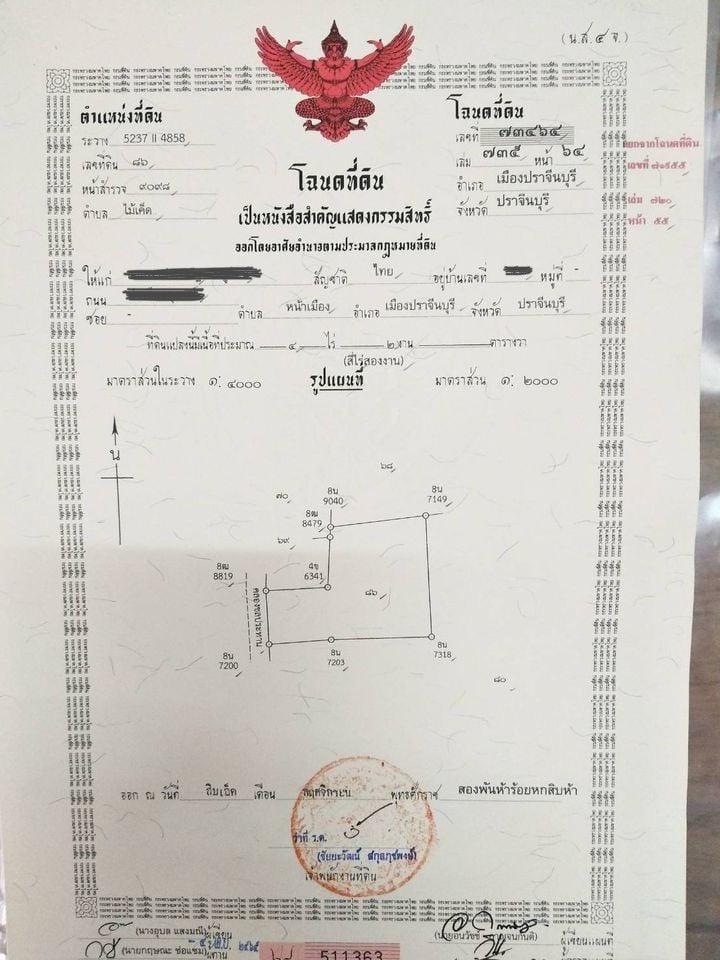 (น.ส.๔ จ.)
ตำแหน่งที่ดิน
ระวาง 5237 II 4858
เลขที่ดิน ๘๖
หน้าสำรวจ ๙๐๙๘
ตำบล ไม้เค็ด
โฉนดที่ดิน
เลขที่ ๗๓๔๖๔
เล่ม ๗๓๕ หน้า ๖๔
อำเภอ เมืองปราจีนบุรี
จังหวัด ปราจีนบุรี
แยกจากโฉนดที่ดิน
เลขที่ ๗๑๕๕๕
เล่ม ๗๒๐
หน้า ๕๕
โฉนดที่ดิน
เป็นหนังสือสำคัญแสดงกรรมสิทธิ์
ออกโดยอาศัยอำนาจตามประมวลกฎหมายที่ดิน
ให้แก่ สัญชาติ ไทย อยู่บ้านเลขที่ หมู่ที่ -
ถนน
ซอย - ตำบล หน้าเมือง อำเภอ เมืองปราจีนบุรี จังหวัด ปราจีนบุรี
ที่ดินแปลงนี้มีเนื้อที่ประมาณ ๔ ไร่ ๒ งาน ตารางวา
(สี่ไร่สองงาน)
มาตราส่วนในระวาง ๑: ๔๐๐๐ รูปแผนที่ มาตราส่วน ๑: ๒๐๐๐
น
๖๘
๗๐
8น
9040
8น
7149
8ฒ
8479
๖๙
8ฒ
8819
4ข
6341
๘๖
คลองชลประทาน
8น
7200
8น
7203
8น
7318
๘๐
ออก ณ วันที่ สิบเอ็ด เดือน พฤศจิกายน พุทธศักราช สองพันห้าร้อยหกสิบห้า
ว่าที่ ร.ต.
(ชัยยะวัฒน์ สกุลภุชพงษ์)
เจ้าพนักงานที่ดิน
(นางอุบล แสงมณี) ผู้เขียน
(นายกฤษณะ ช่อแซม) ผู้ทาน
ผู้เขียนแผนที่
511363